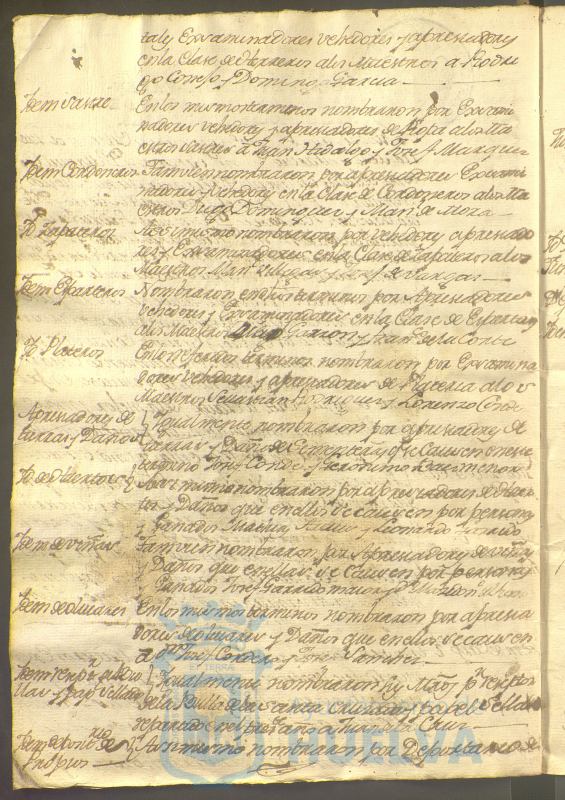 tales Examinadores vehedores y apresiadores
en la Clase de Herreros a los Maestros a Rodri
go Correso y Domingo Garcia
Ydem sastre
En los mismos terminos nombraron por Exsami
nadores vehedores y apresiadores de Ropa a los Ma
estros sastres a Fran. Hidalgo y Jose Marquez
Ydem Cordoneros
Tamvien nombraron por apresiadores Exsami
nadores y vehedores en la Clase de Cordoneros a los Ma
estros Diego Dominguez y Man. de Mora
Yd. Zapateros
Asi mismo nombraron por vehedores y apresiado
res y Exsaminadores en la Clase de Zapateros a los
Maestros Man. Villegas y Jose de Vargas
Ydem Esparteros
Nombraron en dhos terminos por Apresiadores
vehedores y Exsaminadores en la Clase de Esparteros
a los Maestros Garzon y Fran. de la Corte
Yd. Plateros
En los referidos terminos nombraron por Exsamina
dores vehedores y apresiadores de Plateria a los
Maestros Sevastian Rodriguez y Lorenzo Conde
Apresiadores de
tierras y Daños
Igualmente nombraron por apresiadores de
tierras y Daños de sementeras que se causen en este
termino Jose Conde y Geronimo menor
Yd. de Huertos
Asi mismo nombraron por apresiadores de Huer
tos y Daños que en ellos se causen por personas
y Ganados y Leonardo
Ydem de viñas
Tamvien nombraron por Apresiadores de viñas
y Daños que en ellas se causen por personas
Ganados Jose Garrido maior y
Ydem de olivares
En los mismos terminos nombraron por apresia
dores de olivares y Daños que en ellos se causen
a Jose Cordero y Jose Sanchez
Ydem
llas y pap. vellado
Igualmente nombraron sus Mds. p. receptor
de la Bulla de la Santa Cruzada y papel sellado
de la Cruz
Ydem deposit.rio de
Propios
Asi mismo nombraron por Depositario de
HUELVA